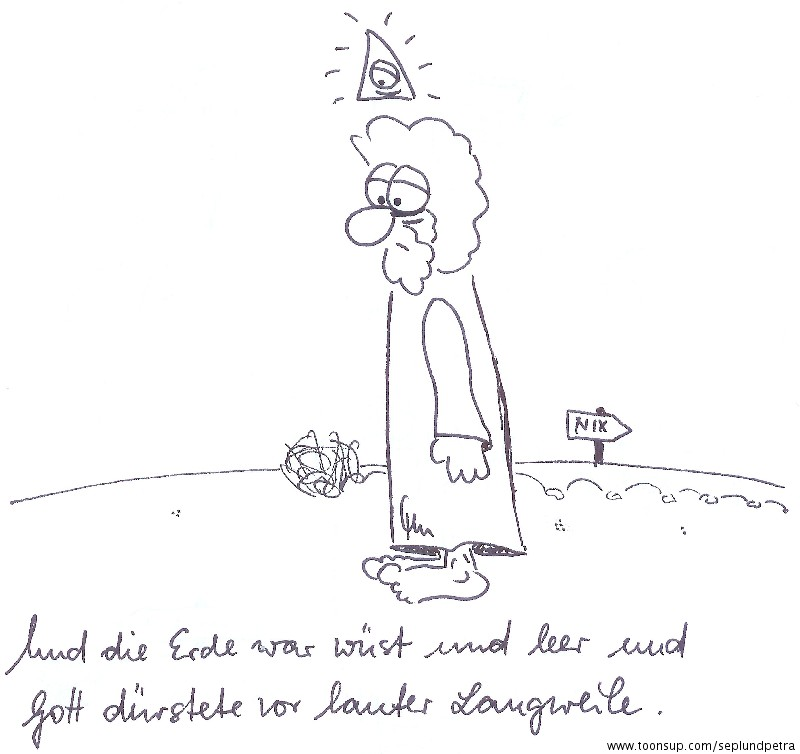 NIX
Und die Erde war wüst und leer und
Gott dürstete vor lauter Langweile.
www.toonsup.com/seplundpetra